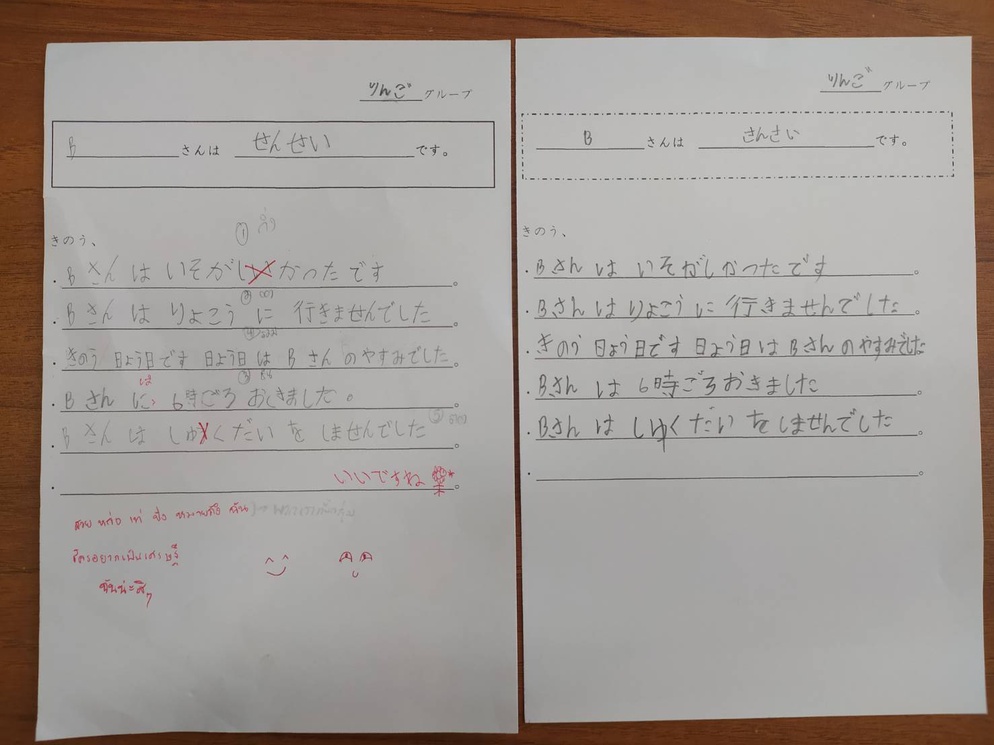 りんご グループ
B さんは せんせい です。
きのう、
・B さん は いそがしかったです 。
・B さん は りょこう に 行きませんでした 。
・きのう 日よう日です 日よう日 は B さん のやすみでした 。
は
・B さん に 6時ごろ おきました。 。
・B さん は しゅくだい を しませんでした 。
・ いいですね 。
สวย หล่อ เท่ ปัง หมายถึง ฉัน
ใครอยากเป็นเศรษฐี
ฉันน่ะสิๆ
りんご グループ
B さんは さんさい です。
きのう、
・Bさん は いそがしかったです 。
・Bさん は りょこう に 行きませんでした 。
・きのう 日よう日です 日よう日は Bさん のやすみでした
・Bさん は 6時ごろ おきました 。
・Bさん は しゅく だい を しませんでした 。
・ 。